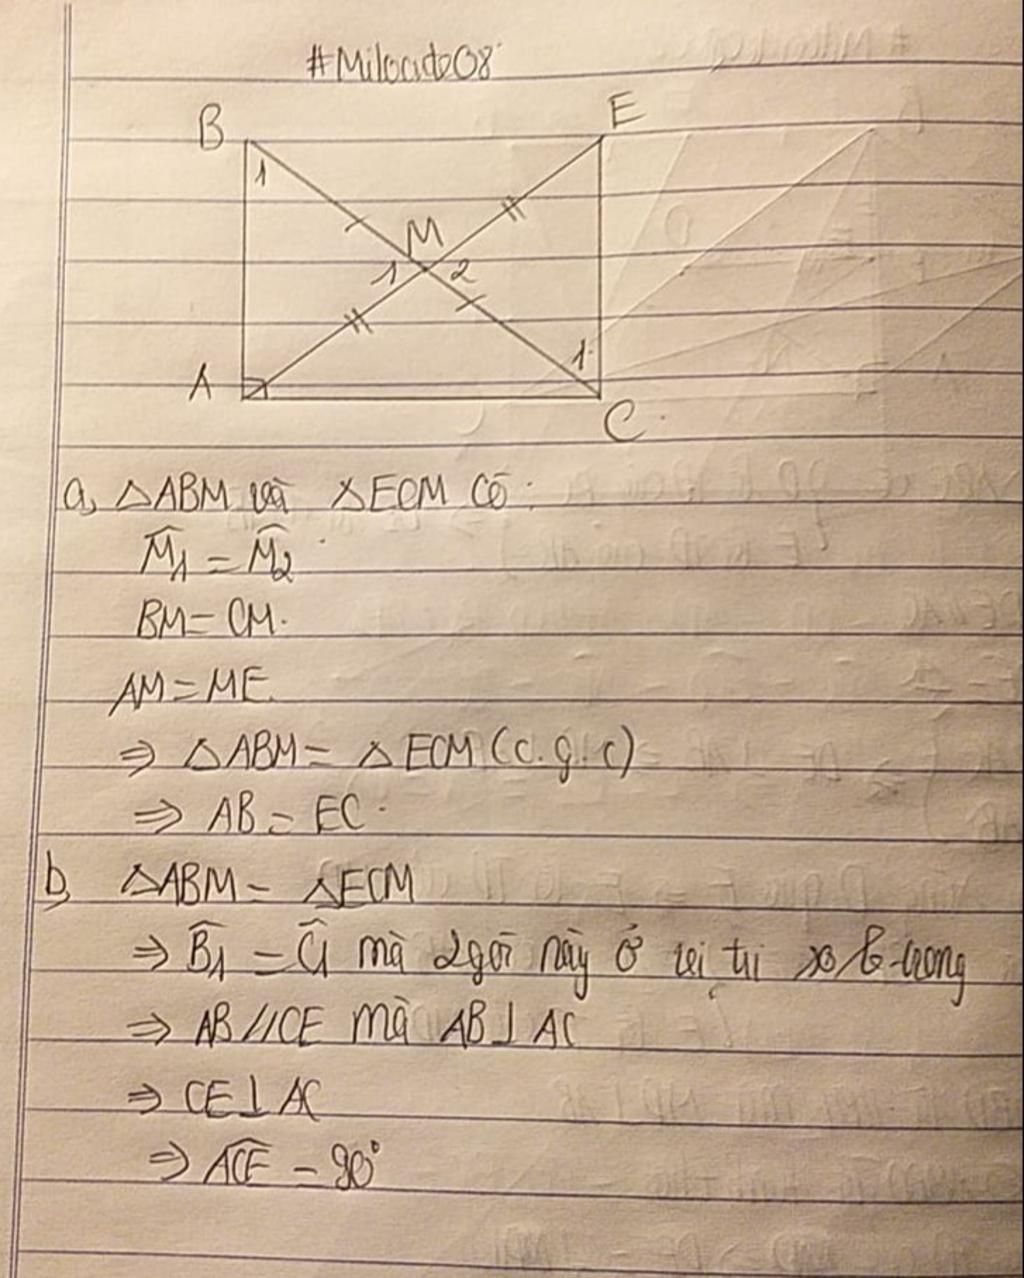 #Milocuto08
B
E
1
M
1
2
1
A
C
a, △ABM và △ECM có:
M̂1 = M̂2
BM = CM.
AM = ME.
⇒ △ABM = △ECM (c.g.c)
⇒ AB = EC.
b, △ABM = △ECM
⇒ B̂1 = Ĉ1 mà 2 góc này ở vị trí so le trong
⇒ AB//CE mà AB⊥AC
⇒ CE⊥AC
⇒ ACE = 90°